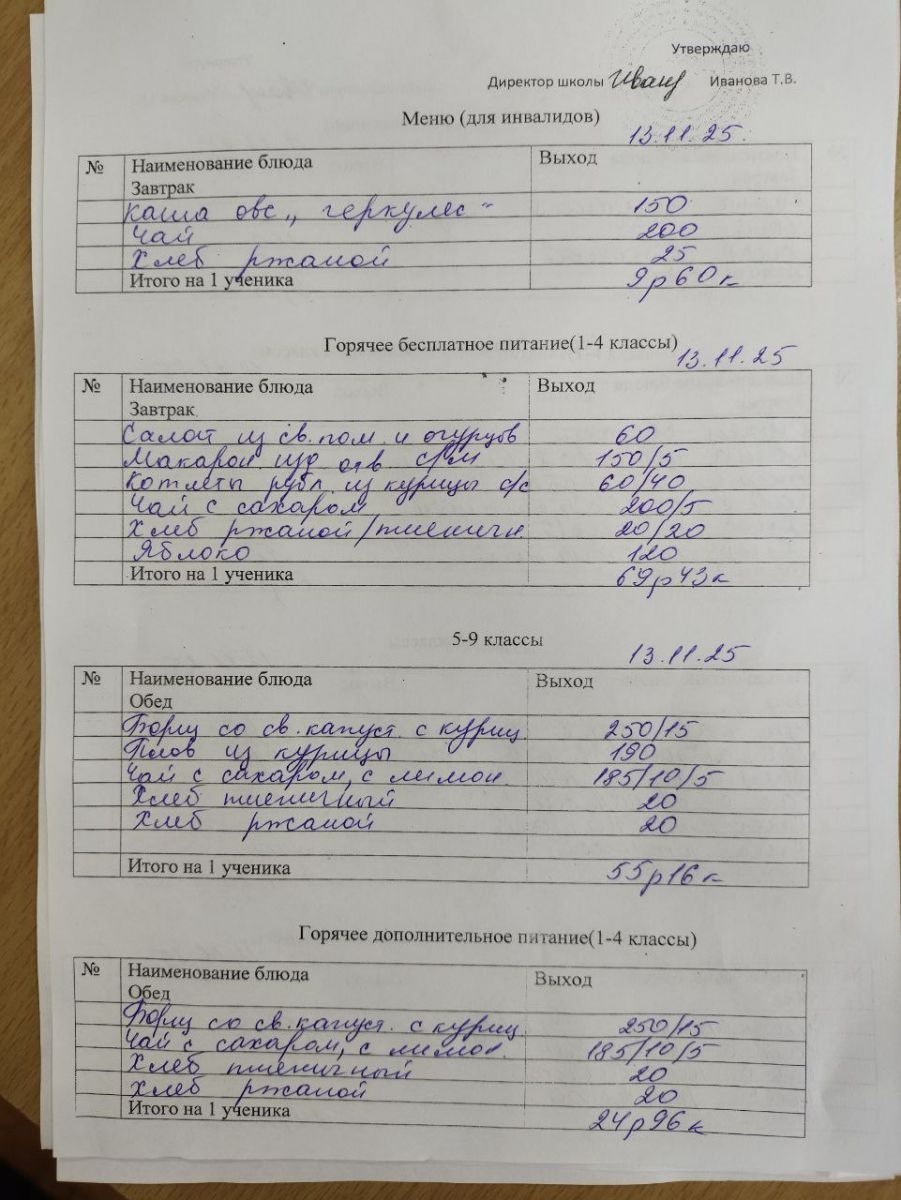 Утверждаю
Директор школы Иванова Т.В.
Меню (для инвалидов)
13.11.25.
№ Наименование блюда Выход
Завтрак
Каша овс „геркулес“ 150
Чай 200
Хлеб ржаной 25
Итого на 1 ученика 9р60к
Горячее бесплатное питание(1-4 классы)
13.11.25
№ Наименование блюда Выход
Завтрак
Салат из св.пом. и огурцов 60
Макарон изд отв с/м 150/5
Котлеты рубл. из курицы с/с 60/40
Чай с сахаром 200/5
Хлеб ржаной/пшеничн. 20/20
Яблоко 120
Итого на 1 ученика 69р43к
5-9 классы
13.11.25
№ Наименование блюда Выход
Обед
Борщ со св.капуст. с куриц. 250/15
Плов из курицы 190
Чай с сахаром, с лимон. 185/10/5
Хлеб пшеничный 20
Хлеб ржаной 20
Итого на 1 ученика 55р16к
Горячее дополнительное питание(1-4 классы)
№ Наименование блюда Выход
Обед
Борщ со св.капуст. с куриц. 250/15
Чай с сахаром, с лимон. 185/10/5
Хлеб пшеничный 20
Хлеб ржаной 20
Итого на 1 ученика 24р96к